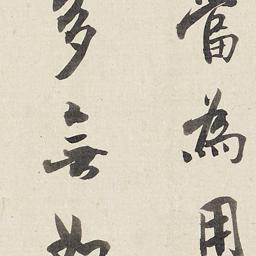 當為用
多無如